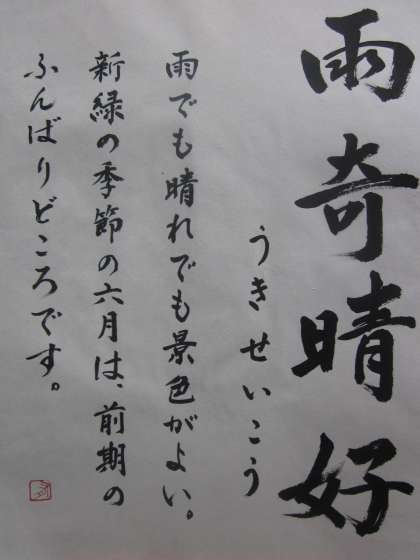 雨奇晴好
うきせいこう
雨でも晴れでも景色がよい。
新緑の季節の六月は、前期の
ふんばりどころです。